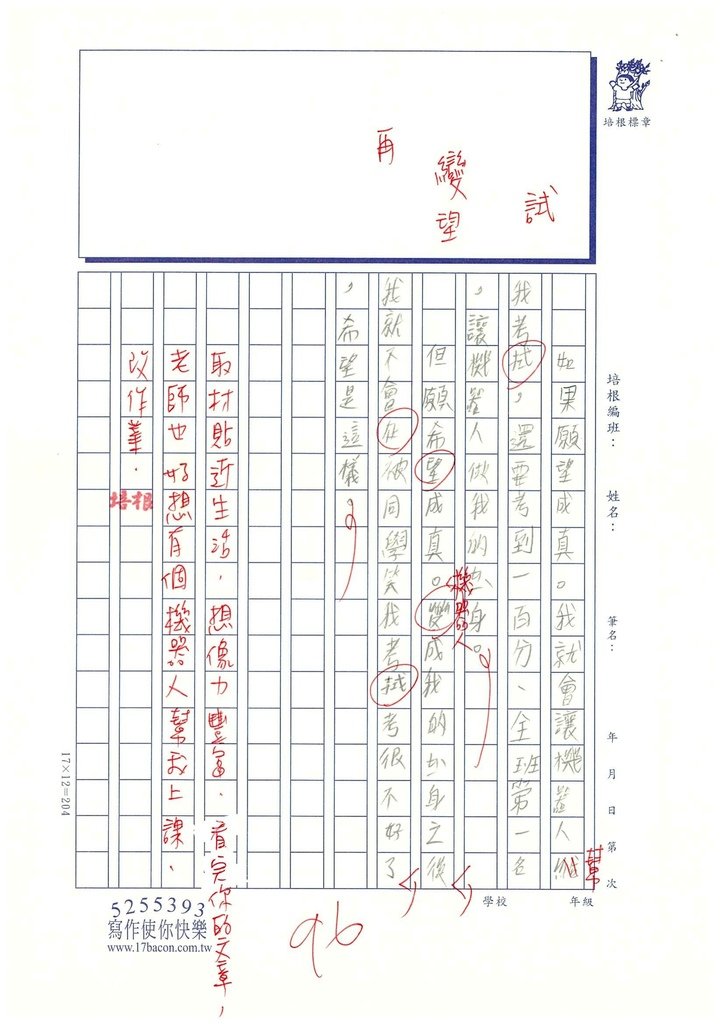 培根標章
試
變
望
再
培根編班： 姓名： 筆名： 年 月 日 第 次
如果願望成真。我就會讓機器人
幫
我考拭，還要考到一百分、全班第一名
，讓機器人做我的分身。
但願希望成真。機器人變成我的分身之後
我就不會在被同學笑我考拭考很不好了
，希望是這樣。
取材貼近生活，想像力豐富。看完你的文章，
老師也好想有個機器人幫我上課、
改作業。
培根
96
學校 年級
17×12=204
5255393
寫作使你快樂
www.17bacon.com.tw